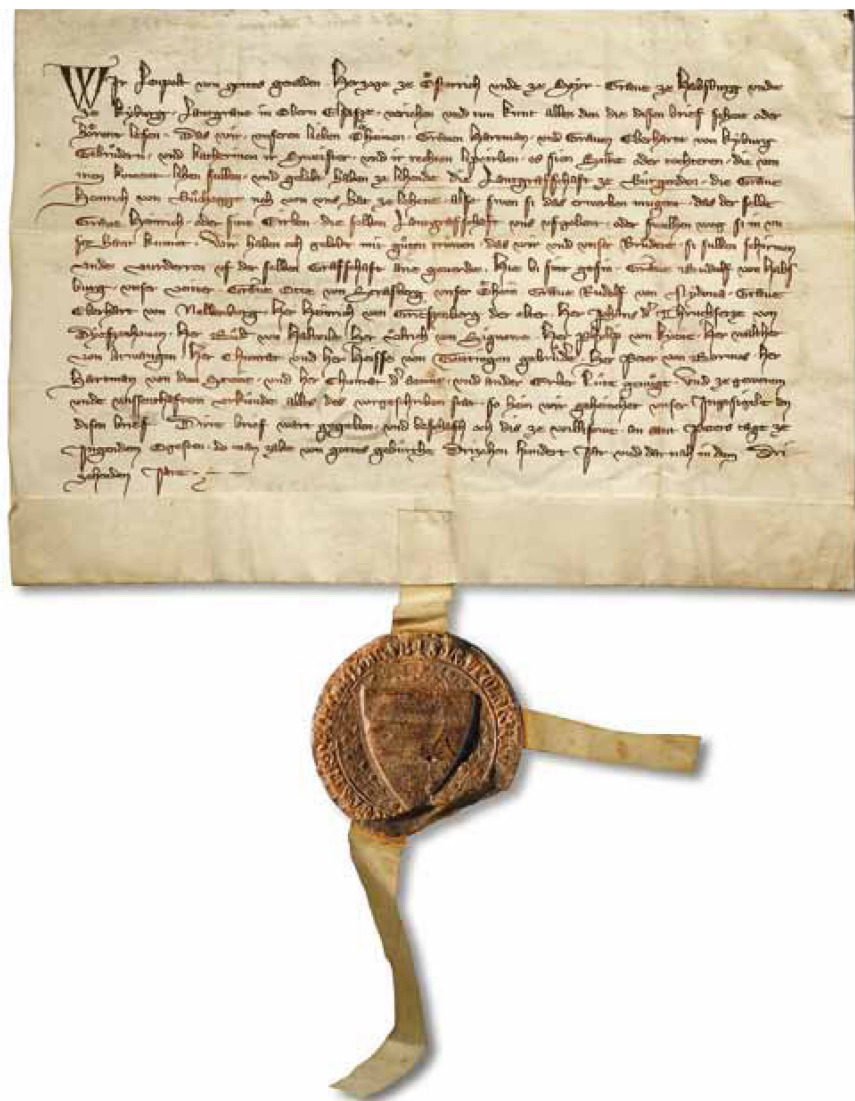 Wir Leupolt von gottes gnaden Herzoge ze Österrich unde ze Styr Grave ze Habsburg unde
ze Kyburg Lantgrave in Obern Elsasze verjehen und tun kunt allen dien die disen brief sehent oder
hörent lesen Das wir unseren lieben Öheimen Graven Hartman und Graven Eberhart von Kyburg
Gebrüdern und Katherinen ir Swester und ir rechten liberben es sien Süne oder tochteren die von
inen koment lihen sullen und gelobt haben ze lihende die Lantgrafschaft ze Bürgenden die Grave
Heinrich von Büchegge noch von uns hat ze lehene also swen si das erwerben mugen das der selbe
Grave Heinrich oder sine Erben die selben Lantgrafschaft uns ufgeben oder swelhen weg si in un
ser hant kumet Wir haben och gelobt mit güten trüwen das wir und unser Brüdere si sullen schirmen
uf der selben Grafschaft ane geverde Hie bi sint gesin Grave Rudolf von Habs
burg unser vetter Grave Otte von Strasberg unser Öhein Grave Rudolf von Nydowa Grave
Eberhart von Nellenburg Her Heinrich von Griessenberg der alte Her Johans der Thruchsetze von
Diessenhoven Her von Her Ülrich von Her Philip von Kyent Her Walther
von Arwangen Her Chunrat und her Heisse von Töitingen gebrüder Her Peter von Her
Hartman von dem Steine und her Chunrat der und ander Erber Lüte genüge Und ze
unde urkünde alles des vorgeschriben stat so hein wir gehenchet unser Ingesigele an
disen brief Dirre brief wart gegeben und beschach och dis ze an sant Peters tage ze
Ingendem Ogesten do man zalte von gottes gebürthe Drizehen hundert Jar und dar nah in dem Dri
zehenden Jare